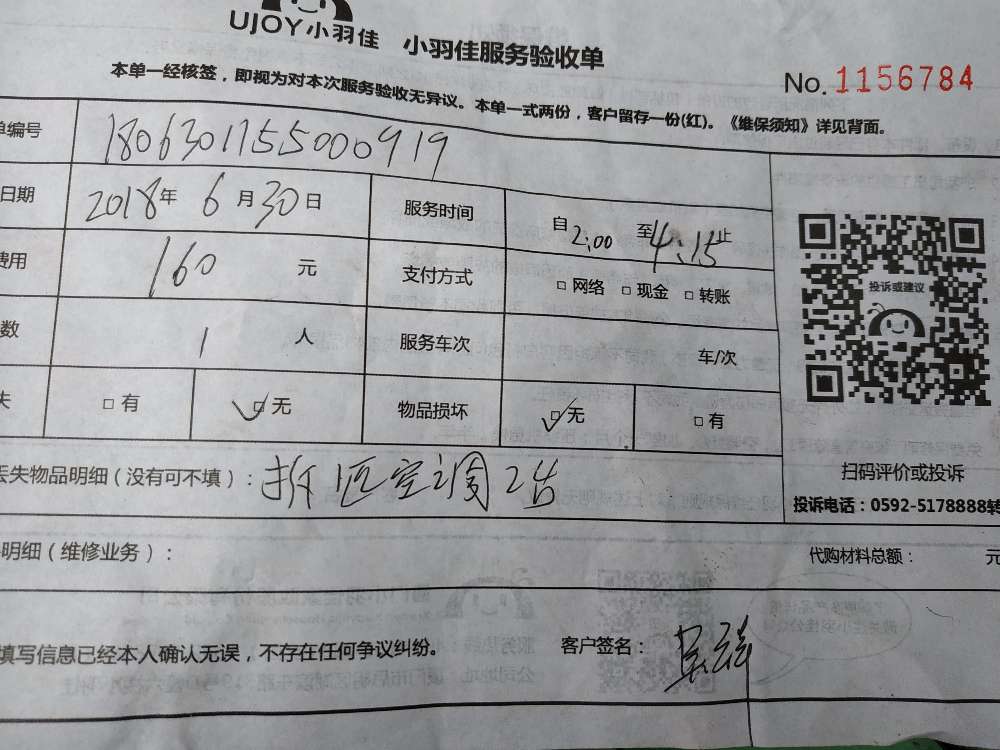 UJOY小羽佳 小羽佳服务验收单
No. 1156784
本单一经核签，即视为对本次服务验收无异议。本单一式两份，客户留存一份(红)。《维保须知》详见背面。
单编号 1806301155000919
日期 2018年 6月30日 服务时间 自2:00 至4:15止
费用 160 元 支付方式 □网络 □现金 □转账
数 1 人 服务车次 车/次
失 □有 ✓□无 物品损坏 ✓□无 □有
投诉或建议
扫码评价或投诉
投诉电话：0592-5178888转
丢失物品明细（没有可不填）：拆 匹空调2台
明细（维修业务）： 代购材料总额： 元
填写信息已经本人确认无误，不存在任何争议纠纷。 客户签名：